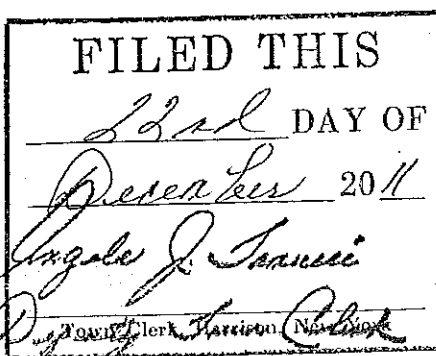 FILED THIS
22nd DAY OF
December 2011
J.
Deputy Town Clerk
Town Clerk, Harrison, New York